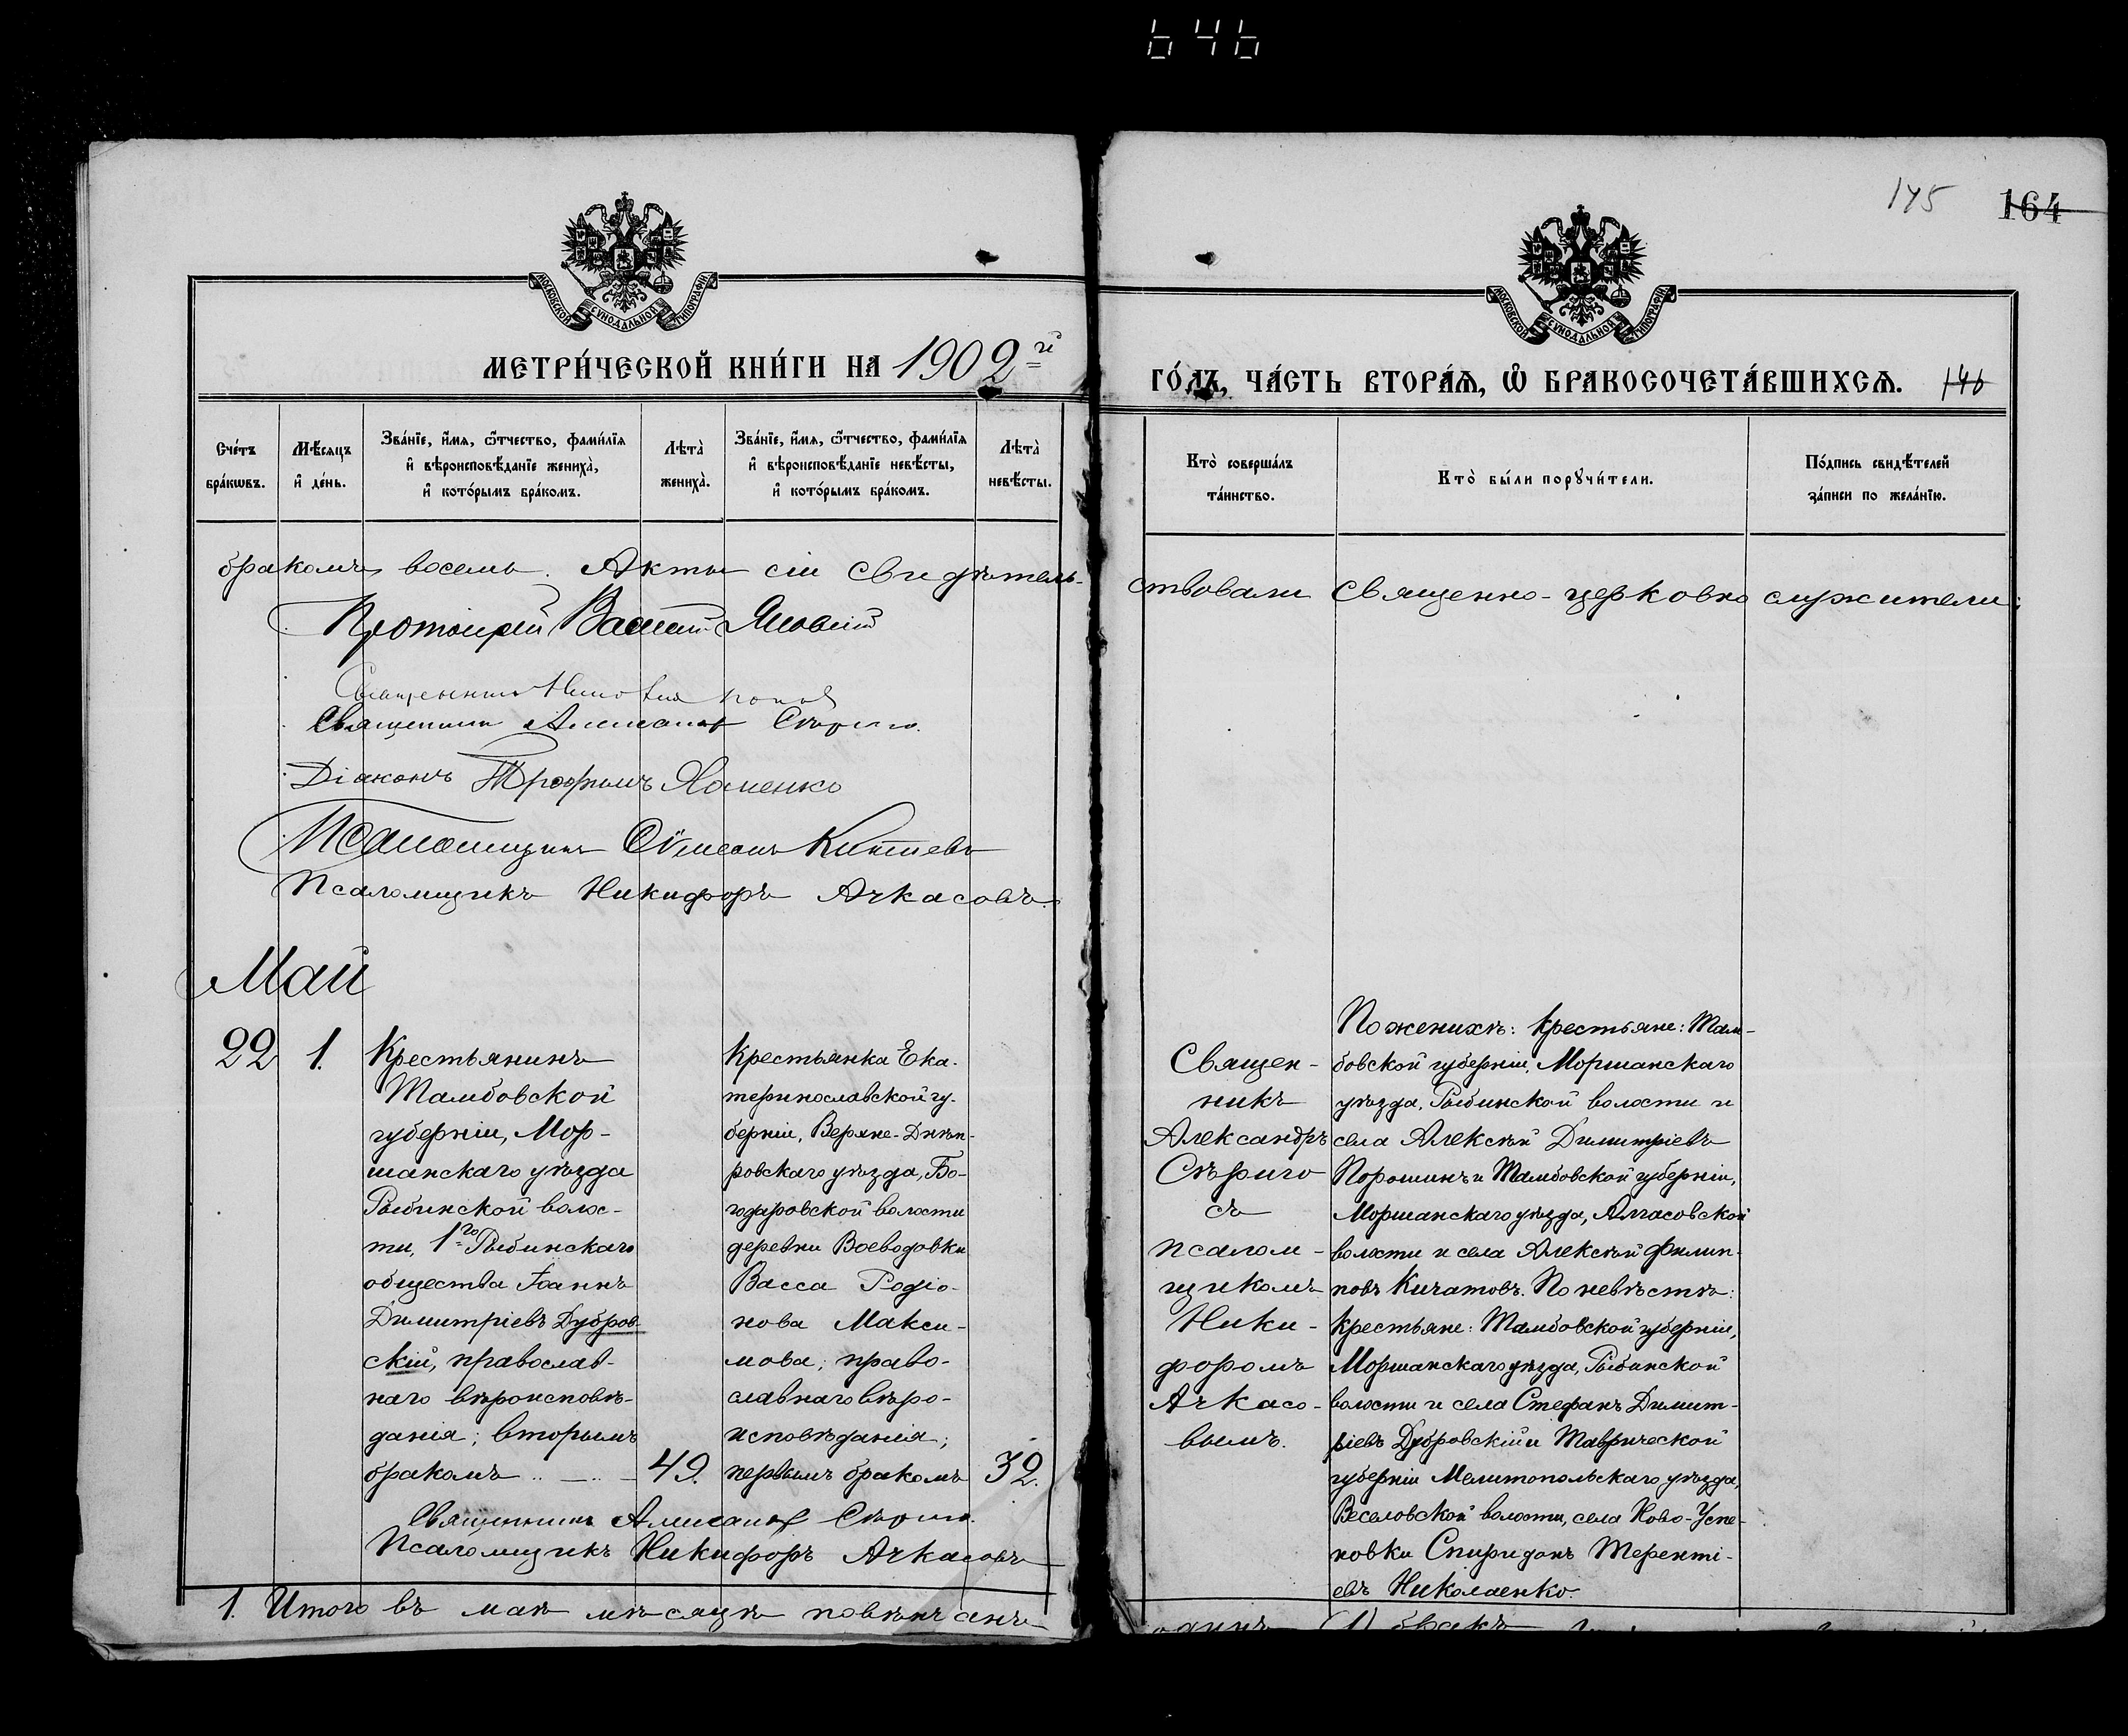 646
145 164
МОСКОВСКОЙ СѴНОДАЛЬНОЙ ТИПОГРАФІИ.
МОСКОВСКОЙ СѴНОДАЛЬНОЙ ТИПОГРАФІИ.
МЕТРИ́ЧЕСКОЙ КНИ́ГИ НА 1902-й
ГО́ДЪ, ЧА́СТЬ ВТОРА́Ѧ, Ѽ БРАКОСОЧЕТА́ВШИХСѦ. 146
Сче́тъ
бра́кѡвъ.
Мѣ́сяцъ
и҆ де́нь.
Зва́нїе, и҆́мѧ, ѻ҆́тчество, фами́лїѧ
и҆ вѣроисповѣ́данїе жениха̀,
и҆ кото́рымъ бра́комъ.
Лѣта̀
жениха̀.
Зва́нїе, и҆́мѧ, ѻ҆́тчество, фами́лїѧ
и҆ вѣроисповѣ́данїе невѣ́сты,
и҆ кото́рымъ бра́комъ.
Лѣта̀
невѣ́сты.
Кто̀ соверша́лъ
та́инство.
Кто̀ бы́ли порꙋчи́тели.
По́дпись свидѣ́телей
за́писи по жела́нїю.
бракомъ восемь. Акты сіи свидѣтель-
ствовали Священно-церковно служители:
Протоіерей Василій
Священникъ Попов
Священникъ Александр Сѣриго.
Діаконъ Трофимъ Яоменко
Псаломщикъ Сѵмеонъ
Псаломщикъ Никифоръ Ачкасовъ.
Май
22 1.
Крестьянинъ
Тамбовской
губерніи, Мор-
шанскаго уѣзда
Рыбинской волос-
ти, 1-го Рыбинскаго
общества Іоаннъ
Димитріевъ Дубров-
скій, православ-
наго вѣроисповѣ-
данія; вторымъ
бракомъ .. — .. —
49.
Крестьянка Ека-
теринославской гу-
берніи, Верхне-Днѣп-
ровскаго уѣзда, Бо-
годаровской волости
деревни Воеводовки
Васса Родіо-
нова Макси-
мова; право-
славнаго вѣро-
исповѣданія;
первымъ бракомъ
32.
Священникъ Александр Сѣриго.
Псаломщикъ Никифоръ Ачкасовъ
1. Итого въ маѣ мѣсяцѣ повѣнчанъ
Священ-
никъ
Александръ
Сѣриго
съ
псалом-
щикомъ
Ники-
форомъ
Ачкасо-
вымъ.
По женихѣ: крестьяне: Там-
бовской губерніи, Моршанскаго
уѣзда, Рыбинской волости и
села Алексѣй Димитріевъ
Порошинъ и Тамбовской губерніи,
Моршанскаго уѣзда, Алгасовской
волости и села Алексѣй Филип-
повъ Кичатовъ. По невѣстѣ:
крестьяне: Тамбовской губерніи,
Моршанскаго уѣзда, Рыбинской
волости и села Стефанъ Димит-
ріевъ Дубровскій и Таврической
губерніи Мелитопольскаго уѣзда,
Веселовской волости, села Ново-Успе-
новки Спиридонъ Теренті-
евъ Николаенко.
одинъ (1) бракъ